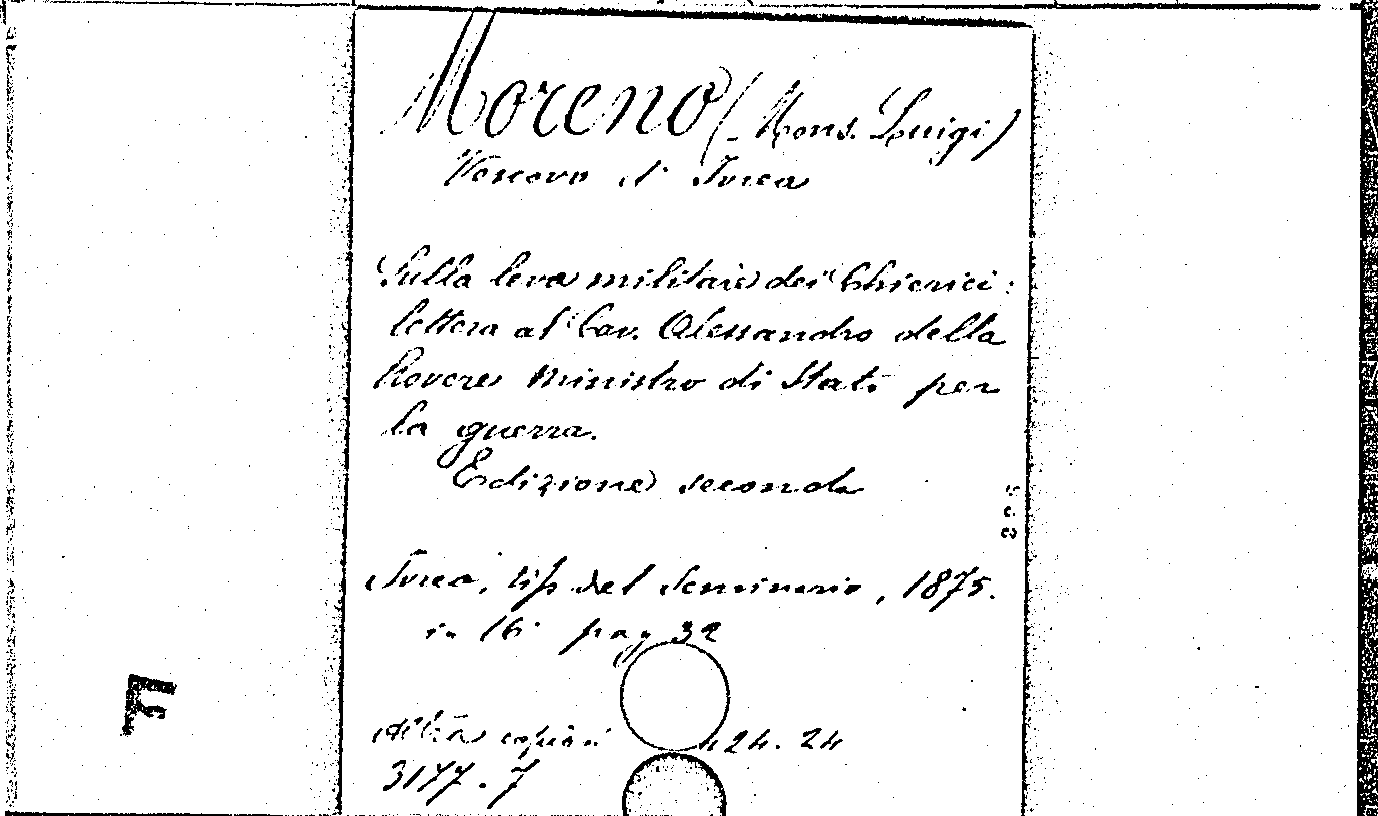 Moreno (Mons. Luigi)
Vescovo d'Ivrea
Sulla leva militare dei Chierici:
lettera al Cav. Alessandro della
Rovere Ministro di Stato per
la guerra.
Edizione seconda
Ivrea, tip del Seminario, 1875.
in 16° pag 32
Altra copia 424.24
3177.7
F